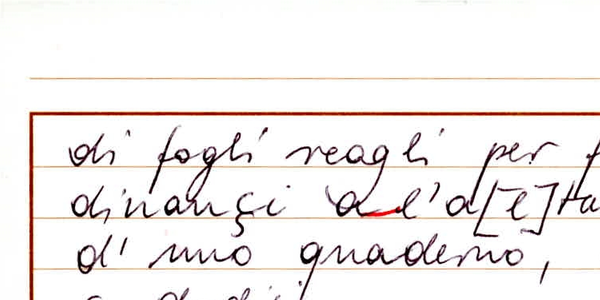 di fogli reagli per f
dinançi a l'a[l]ta
d' uno quaderno,